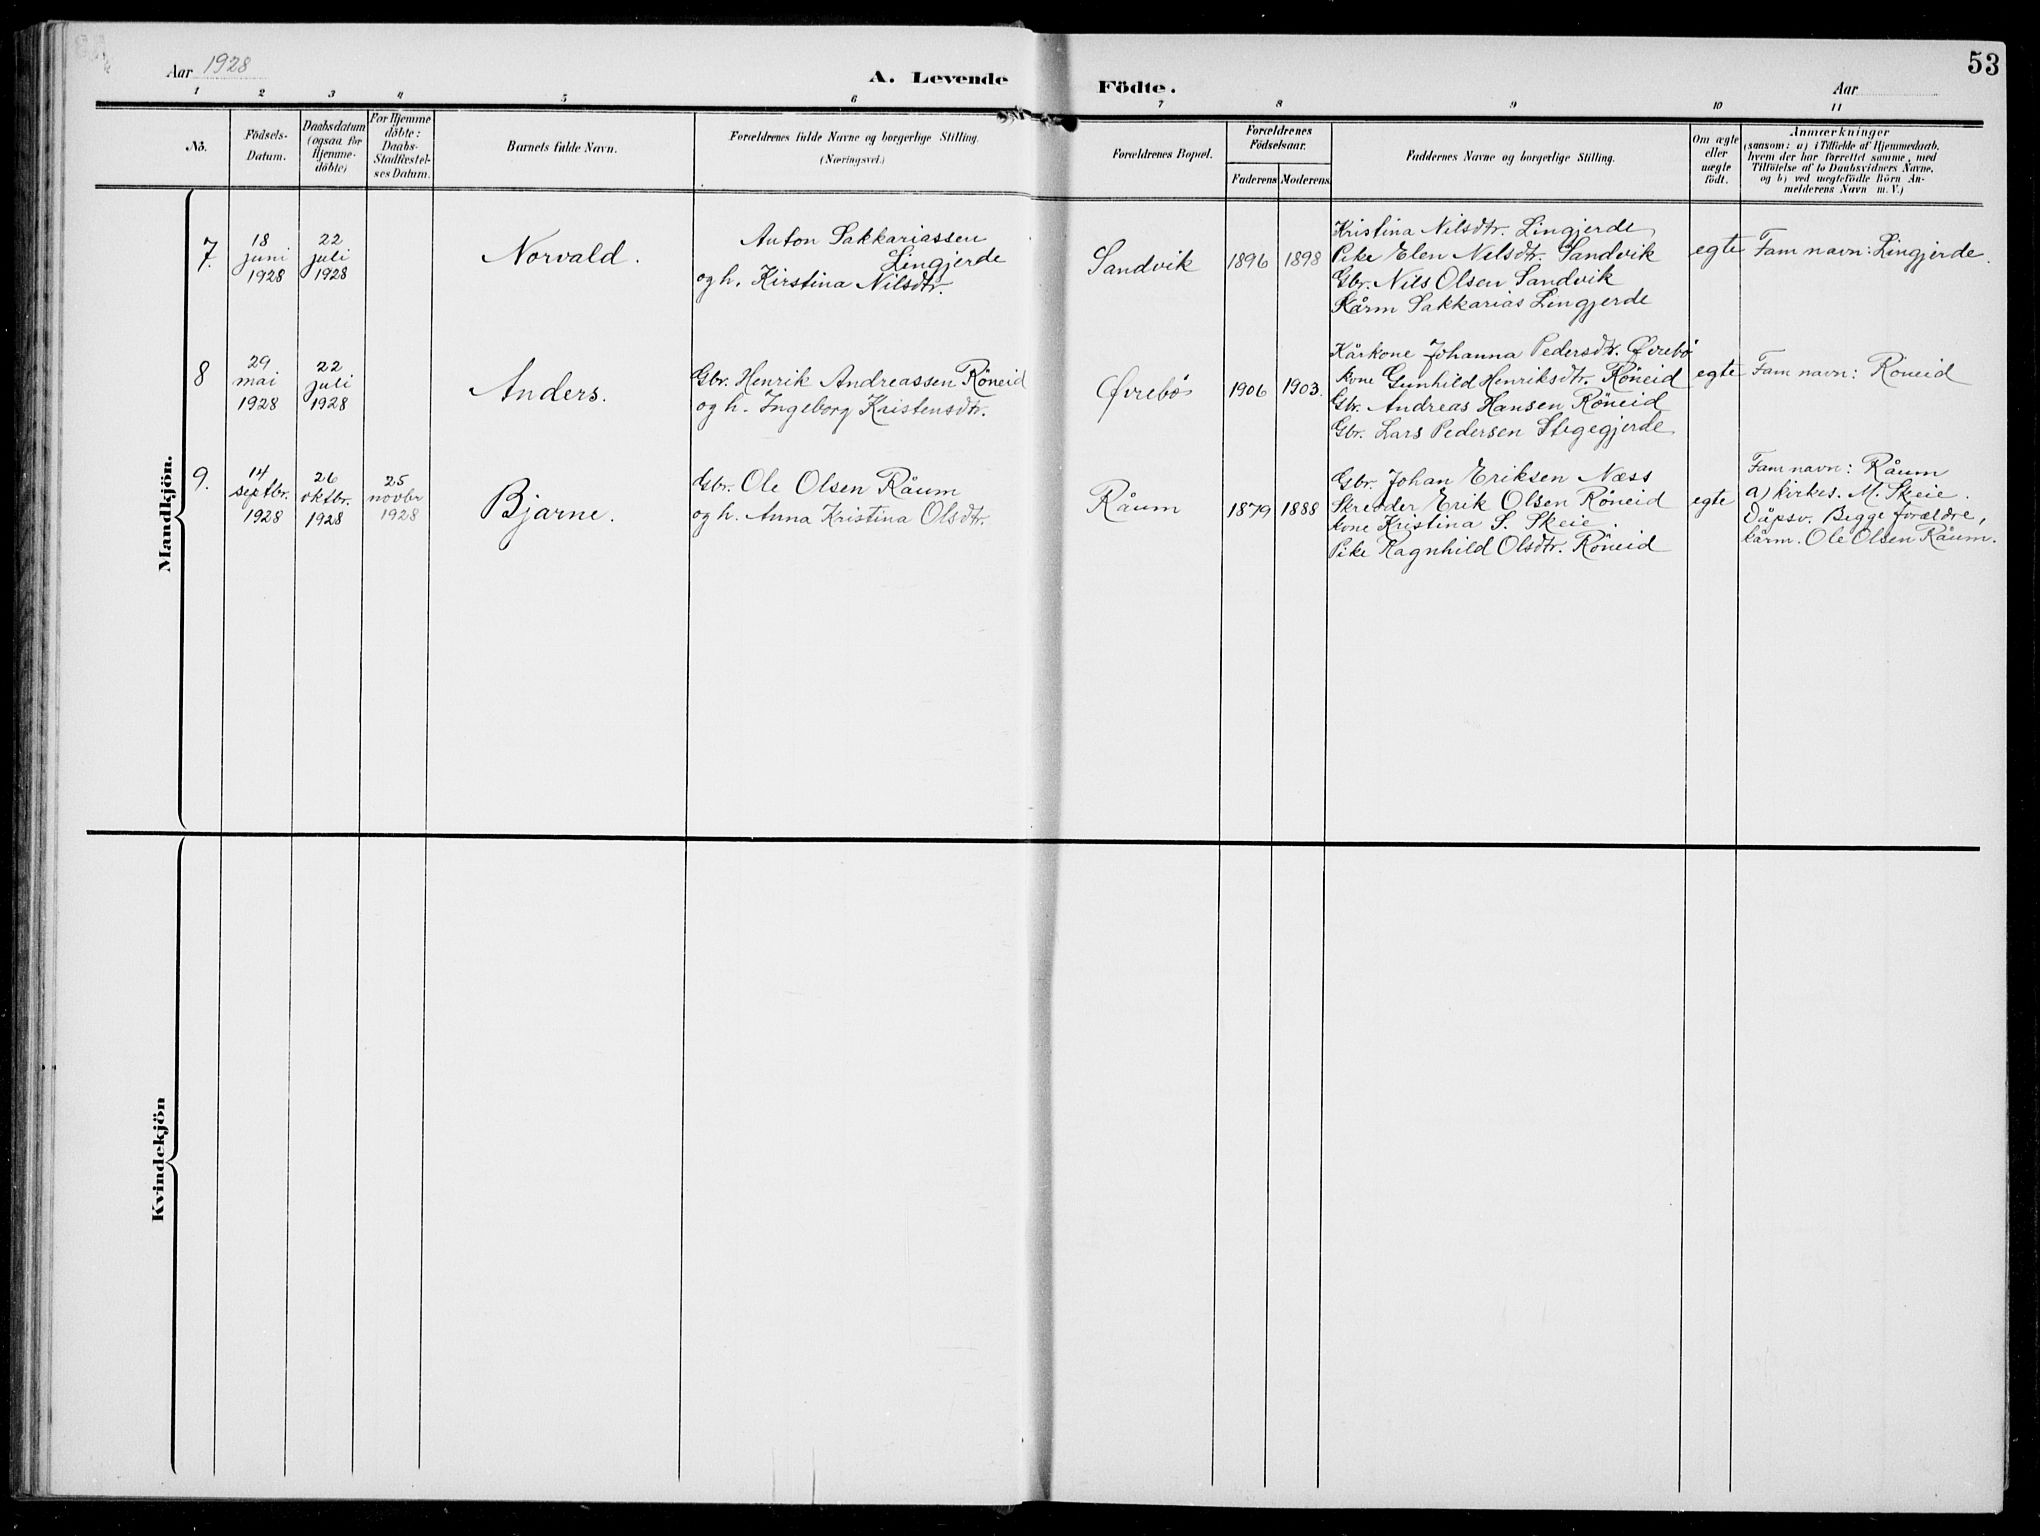 53
Aar 1928
A. Levende Födte.
Aar
1 2 3 4 5 6 7 8 9 10 11
No.
Födsels-
Datum.
Daabsdatum
(ogsaa for
Hjemme-
döbte)
For Hjemme
döbte:
Daabs-
Stadfæstel-
ses Datum.
Barnets fulde Navn.
Forældrenes fulde Navne og borgerlige Stilling.
(Næringsvei.)
Forældrenes Bopæl.
Forældrenes
Födselsaar.
Faderens
Moderens
Faddernes Navne og borgerlige Stilling.
Om ægte
eller
uægte
födt.
Anmærkninger
(saasom: a) i Tilfælde af Hjemmedaab,
hvem der har forrettet samme, med
Tilföielse af to Daabsvidners Navne,
og b) ved uægtefödte Börn An-
melderens Navn m. V.)
Mandkjön.
7.
18
juni
1928
22
juli
1928
Norvald.
Anton Sakkariassen
Lingjerde
og h. Kirstina Nilsdtr.
Sandvik
1896
1898
Kristina Nilsdtr. Lingjerde
Pike Elen Nilsdtr. Sandvik
Gbr. Nils Olsen Sandvik
Kårm Sakkarias Lingjerde
egte
Fam navn: Lingjerde.
8
29
mai
1928
22
juli
1928
Anders.
Gbr. Henrik Andreassen Röneid
og h. Ingeborg Kristensdtr.
Øvrebö
1906
1903.
Kårkone Johanna Pedersdtr. Øvrebö
Kone Gunhild Henriksdtr. Röneid
Gbr. Andreas Hansen Röneid
Gbr. Lars Pedersen Stegegjerde
egte
Fam navn: Röneid
9.
14
septbr.
1928
26
oktbr.
1928
25
novbr
1928
Bjarne.
Gbr. Ole Olsen Råum
og h. Anna Kristina Olsdtr.
Råum
1879
1888
Gbr. Johan Eriksen Næss
Skredder Erik Olsen Röneid
Kone Kristina S. Skeie.
Pike Ragnhild Olsdtr. Röneid
egte
Fam navn: Råum
a) kirkes. M. Skeie.
Dåpsv. Begge forældre,
kårm. Ole Olsen Råum.
Kvindekjön